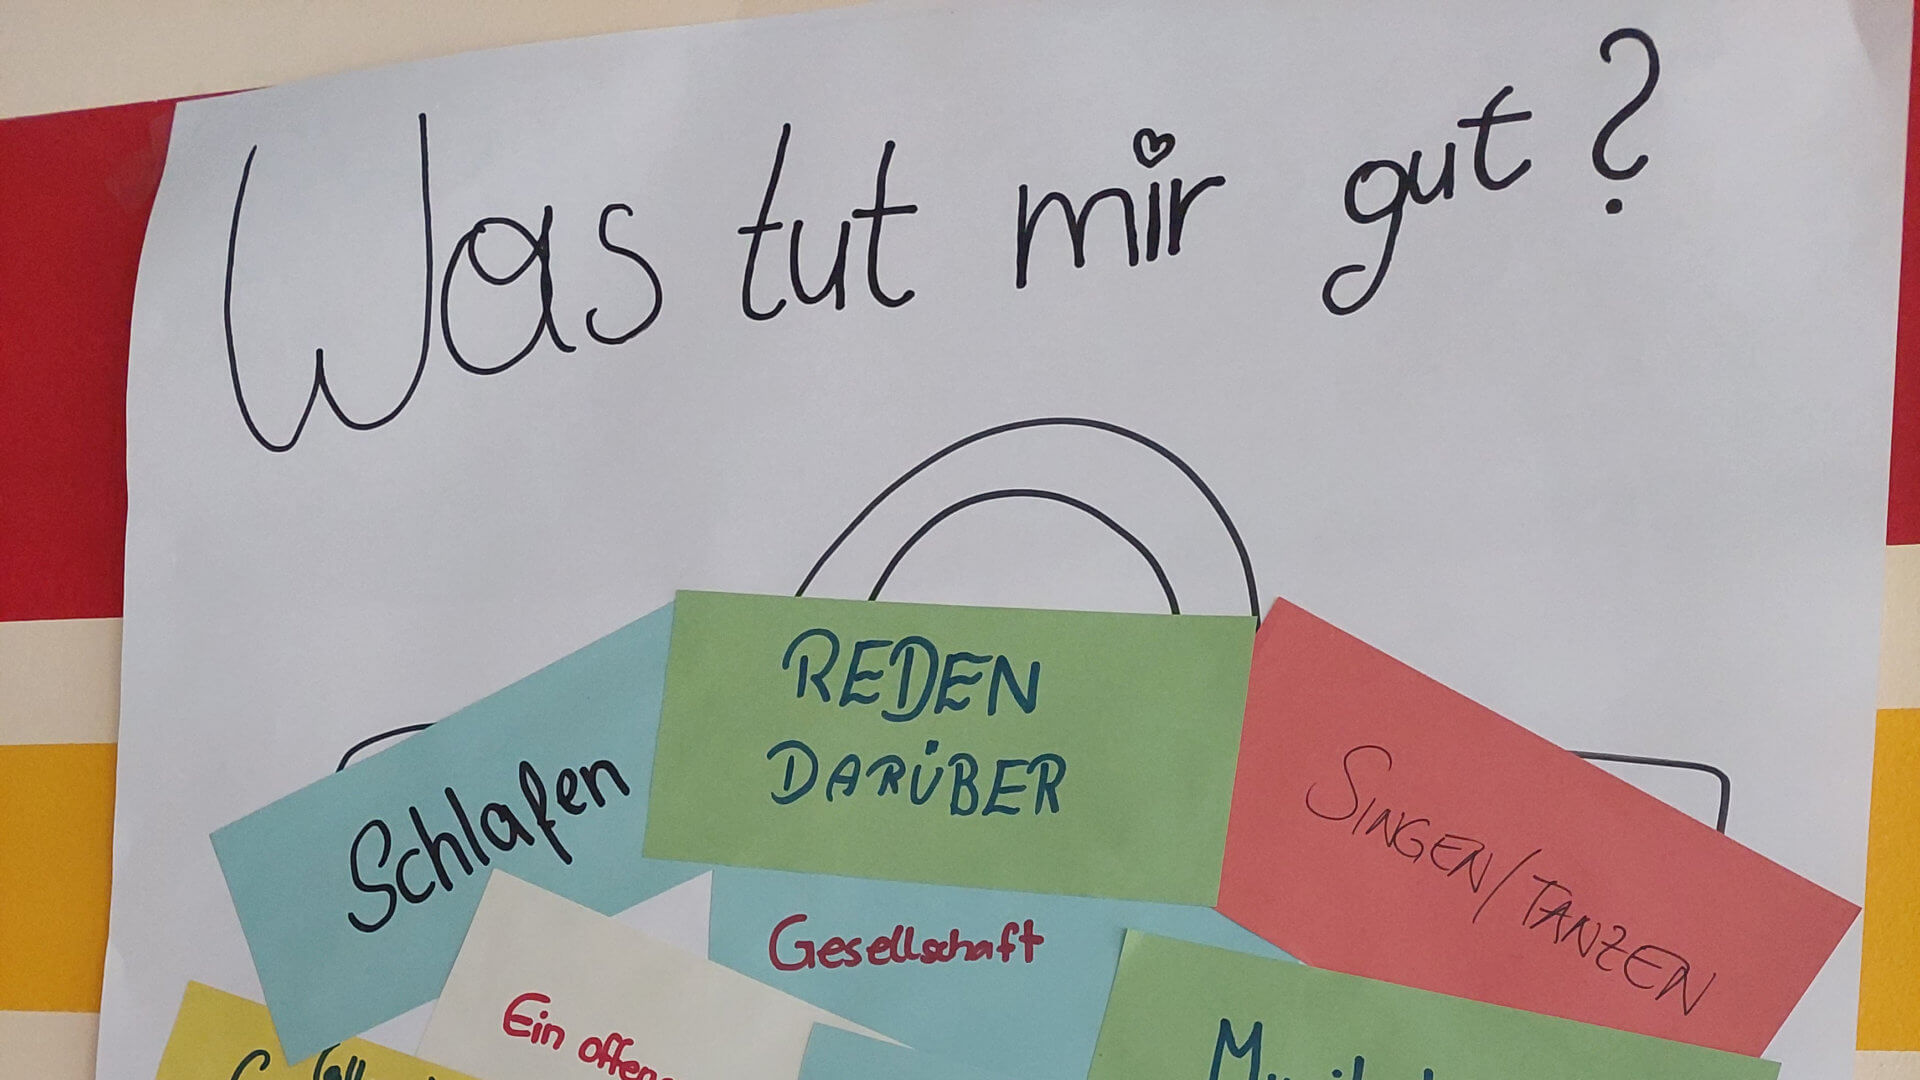 Was tut mir gut?
REDEN
DARÜBER
Schlafen
SINGEN/TANZEN
Gesellschaft
Ein offen